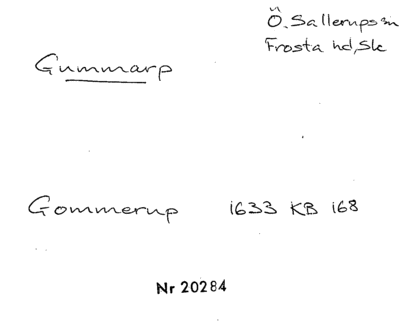 Ö. Sallerups sn
Frosta hd, Sk
Gummarp
Gommerup 1633 KB 168
Nr 20284